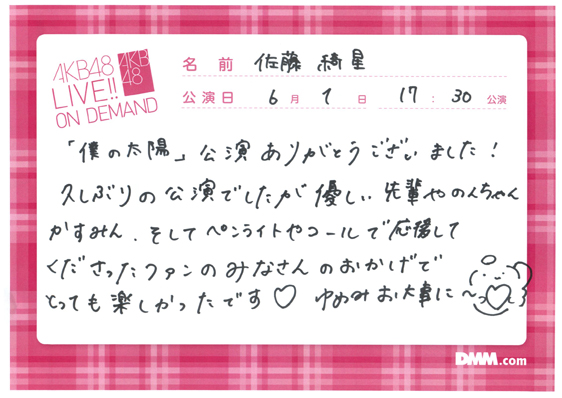 AKB48
LIVE!!
ON DEMAND
AKB
48
名前 佐藤 綺星
公演日 6月7日 17:30 公演
「僕の太陽」公演ありがとうございました!
久しぶりの公演でしたが優しい先輩やのんちゃん
かすみん、そしてペンライトやコールで応援して
くださったファンのみなさんのおかげで
とっても楽しかったです♡ ゆあみお大事に〜
DMM.com